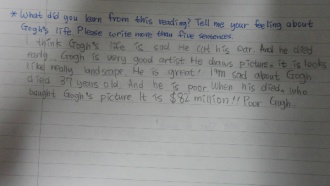 * What did you learn from this reading? Tell me your feeling about
Gogh's life. Please write more than five sentences.
I think Gogh's life is sad. He cut his ear. And he died
early. Gogh is very good artist. He draws picture, it is looks
like really landscape. He is great! I'm sad about Gogh
died 37 years old. And he is poor. When his died, who
bought Gogh's picture. It is $82 million!! Poor Gogh.